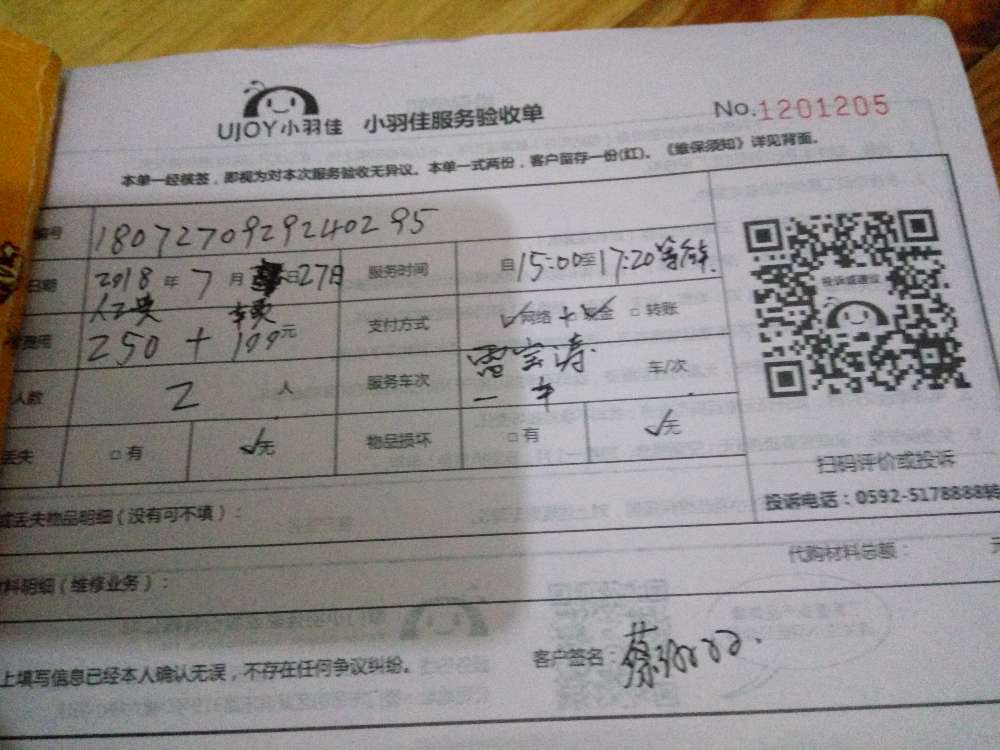 UJOY小羽佳 小羽佳服务验收单 No.1201205
本单一经核签，即视为对本次服务验收无异议。本单一式两份，客户留存一份(红)。《维保须知》详见背面。
编号 1807270929240295
日期 2018年7月 日27日 服务时间 自15:00至17:20等
费用 250+199元 支付方式 ✓网络+✓现金 □转账
人数 2人 服务车次 雷宝涛 一车 车/次
丢失 □有 ✓无 物品损坏 □有 ✓无
投诉或建议
扫码评价或投诉
投诉电话：0592-5178888转
或丢失物品明细（没有可不填）：
代购材料总额： 元
材料明细（维修业务）：
上填写信息已经本人确认无误，不存在任何争议纠纷。 客户签名：蔡